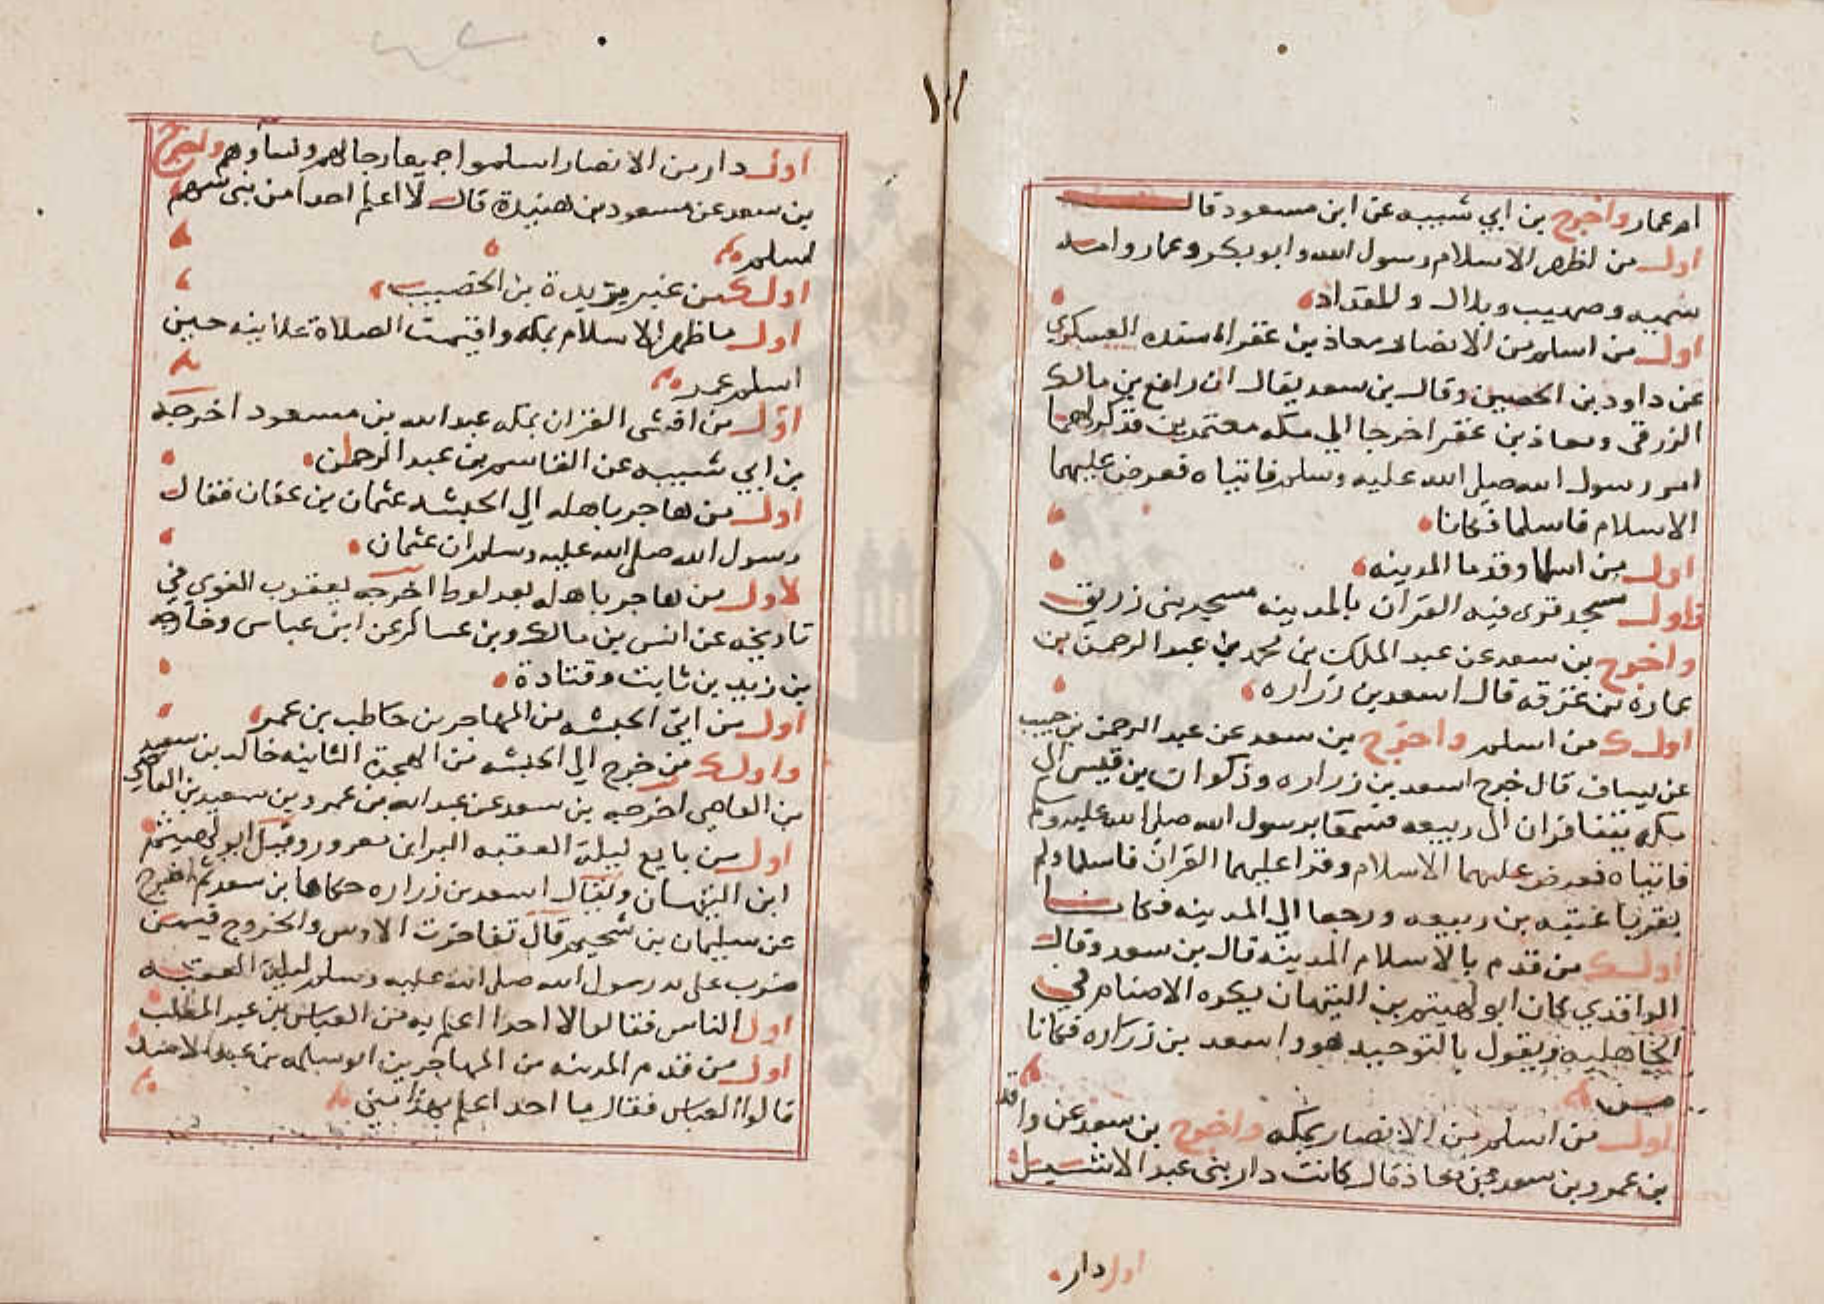 ام عمار واخرج بن ابي شيبه عن ابن مسعود قال
اول من اظهر الاسلام رسول الله وابو بكر وعمار وامه
سميه وصهيب وبلال والمقداد
اول من اسلم من الانصار معاذ بن عفرا اسنده العسكري
عن داود بن الحصين وقال بن سعد يقال ان رافع بن مالك
الزرقي ومعاذ بن عفرا خرجا الي مكه معتمرين فذكر لهما
امر رسول الله صلى الله عليه وسلم فاتياه فعرض عليهما
الاسلام فاسلما فكانا
اول من اسلما وقدما المدينه
واول مسجد قرى فيه القران بالمدينه مسجد بني زريق
واخرج بن سعد عن عبد الملك بن محمد بن عبد الرحمن بن
عماره بن غزيه قال اسعد بن زراره
اول من اسلم واخرج بن سعد عن عبد الرحمن بن حبيب
عن يساف قال خرج اسعد بن زراره وذكوان بن قيس الي
مكه يتنافران الي ربيعه فسمعا برسول الله صلى الله عليه وسلم
فاتياه فعرض عليهما الاسلام وقرا عليهما القران فاسلما ولم
يقربا عتبه بن ربيعه ورجعا الي المدينه فكانا
اول من قدم بالاسلام المدينه قال بن سعد وقال
الواقدي كان ابو الهيتم بن التيهان يكره الاصنام في
الجاهليه ويقول بالتوحيد هو واسعد بن زراره فكانا
من
اول من اسلم من الانصار بمكه واخرج بن سعد عن واقد
بن عمرو بن سعد بن معاذ قال كانت دار بني عبد الاشهل
اول دار
١٢
اول دار من الانصار اسلموا جميعا رجالهم ونساوهم واخرج
بن سعد عن مسعود بن هنيدة قال لا اعلم احدا من بني سهم
اسلم
اول من غير بريدة بن الحصيب
اول ما ظهر الاسلام بمكه واقيمت الصلاة علانيه حين
اسلم عمر
اول من افشى القران بمكه عبد الله بن مسعود اخرجه
بن ابي شيبه عن القاسم بن عبد الرحمن
اول من هاجر باهله الي الحبشه عثمان بن عفان فقال
رسول الله صلى الله عليه وسلم ان عثمان
لاول من هاجر باهله بعد لوط اخرجه يعقوب الفوي في
تاريخه عن انس بن مالك وبن عساكر عن ابن عباس وخارجه
بن زيد بن ثابت وقتادة
اول من اتى الحبشه من المهاجرين حاطب بن عمر
واول من خرج الي الحبشه من الهجرة الثانيه خالد بن سعيد
بن العاصي اخرجه بن سعد عن عبد الله بن عمرو بن سعيد بن العاصي
اول من بايع ليلة العقبه البرا بن معرور وقيل ابو الهيثم
ابن التيهان ويقال اسعد بن زراره حكاها بن سعد ثم اخرج
عن سليمان بن شحيم قال تفاخرت الاوس والخزرج فيمن
ضرب على يد رسول الله صلى الله عليه وسلم ليلة العقبه
اول الناس فقالوا لا احدا اعلم به من العباس بن عبد المطلب
اول من قدم المدينه من المهاجرين ابو سلمه بن عبد الاسد
قالوا العباس فقال ما احد اعلم بهذا مني